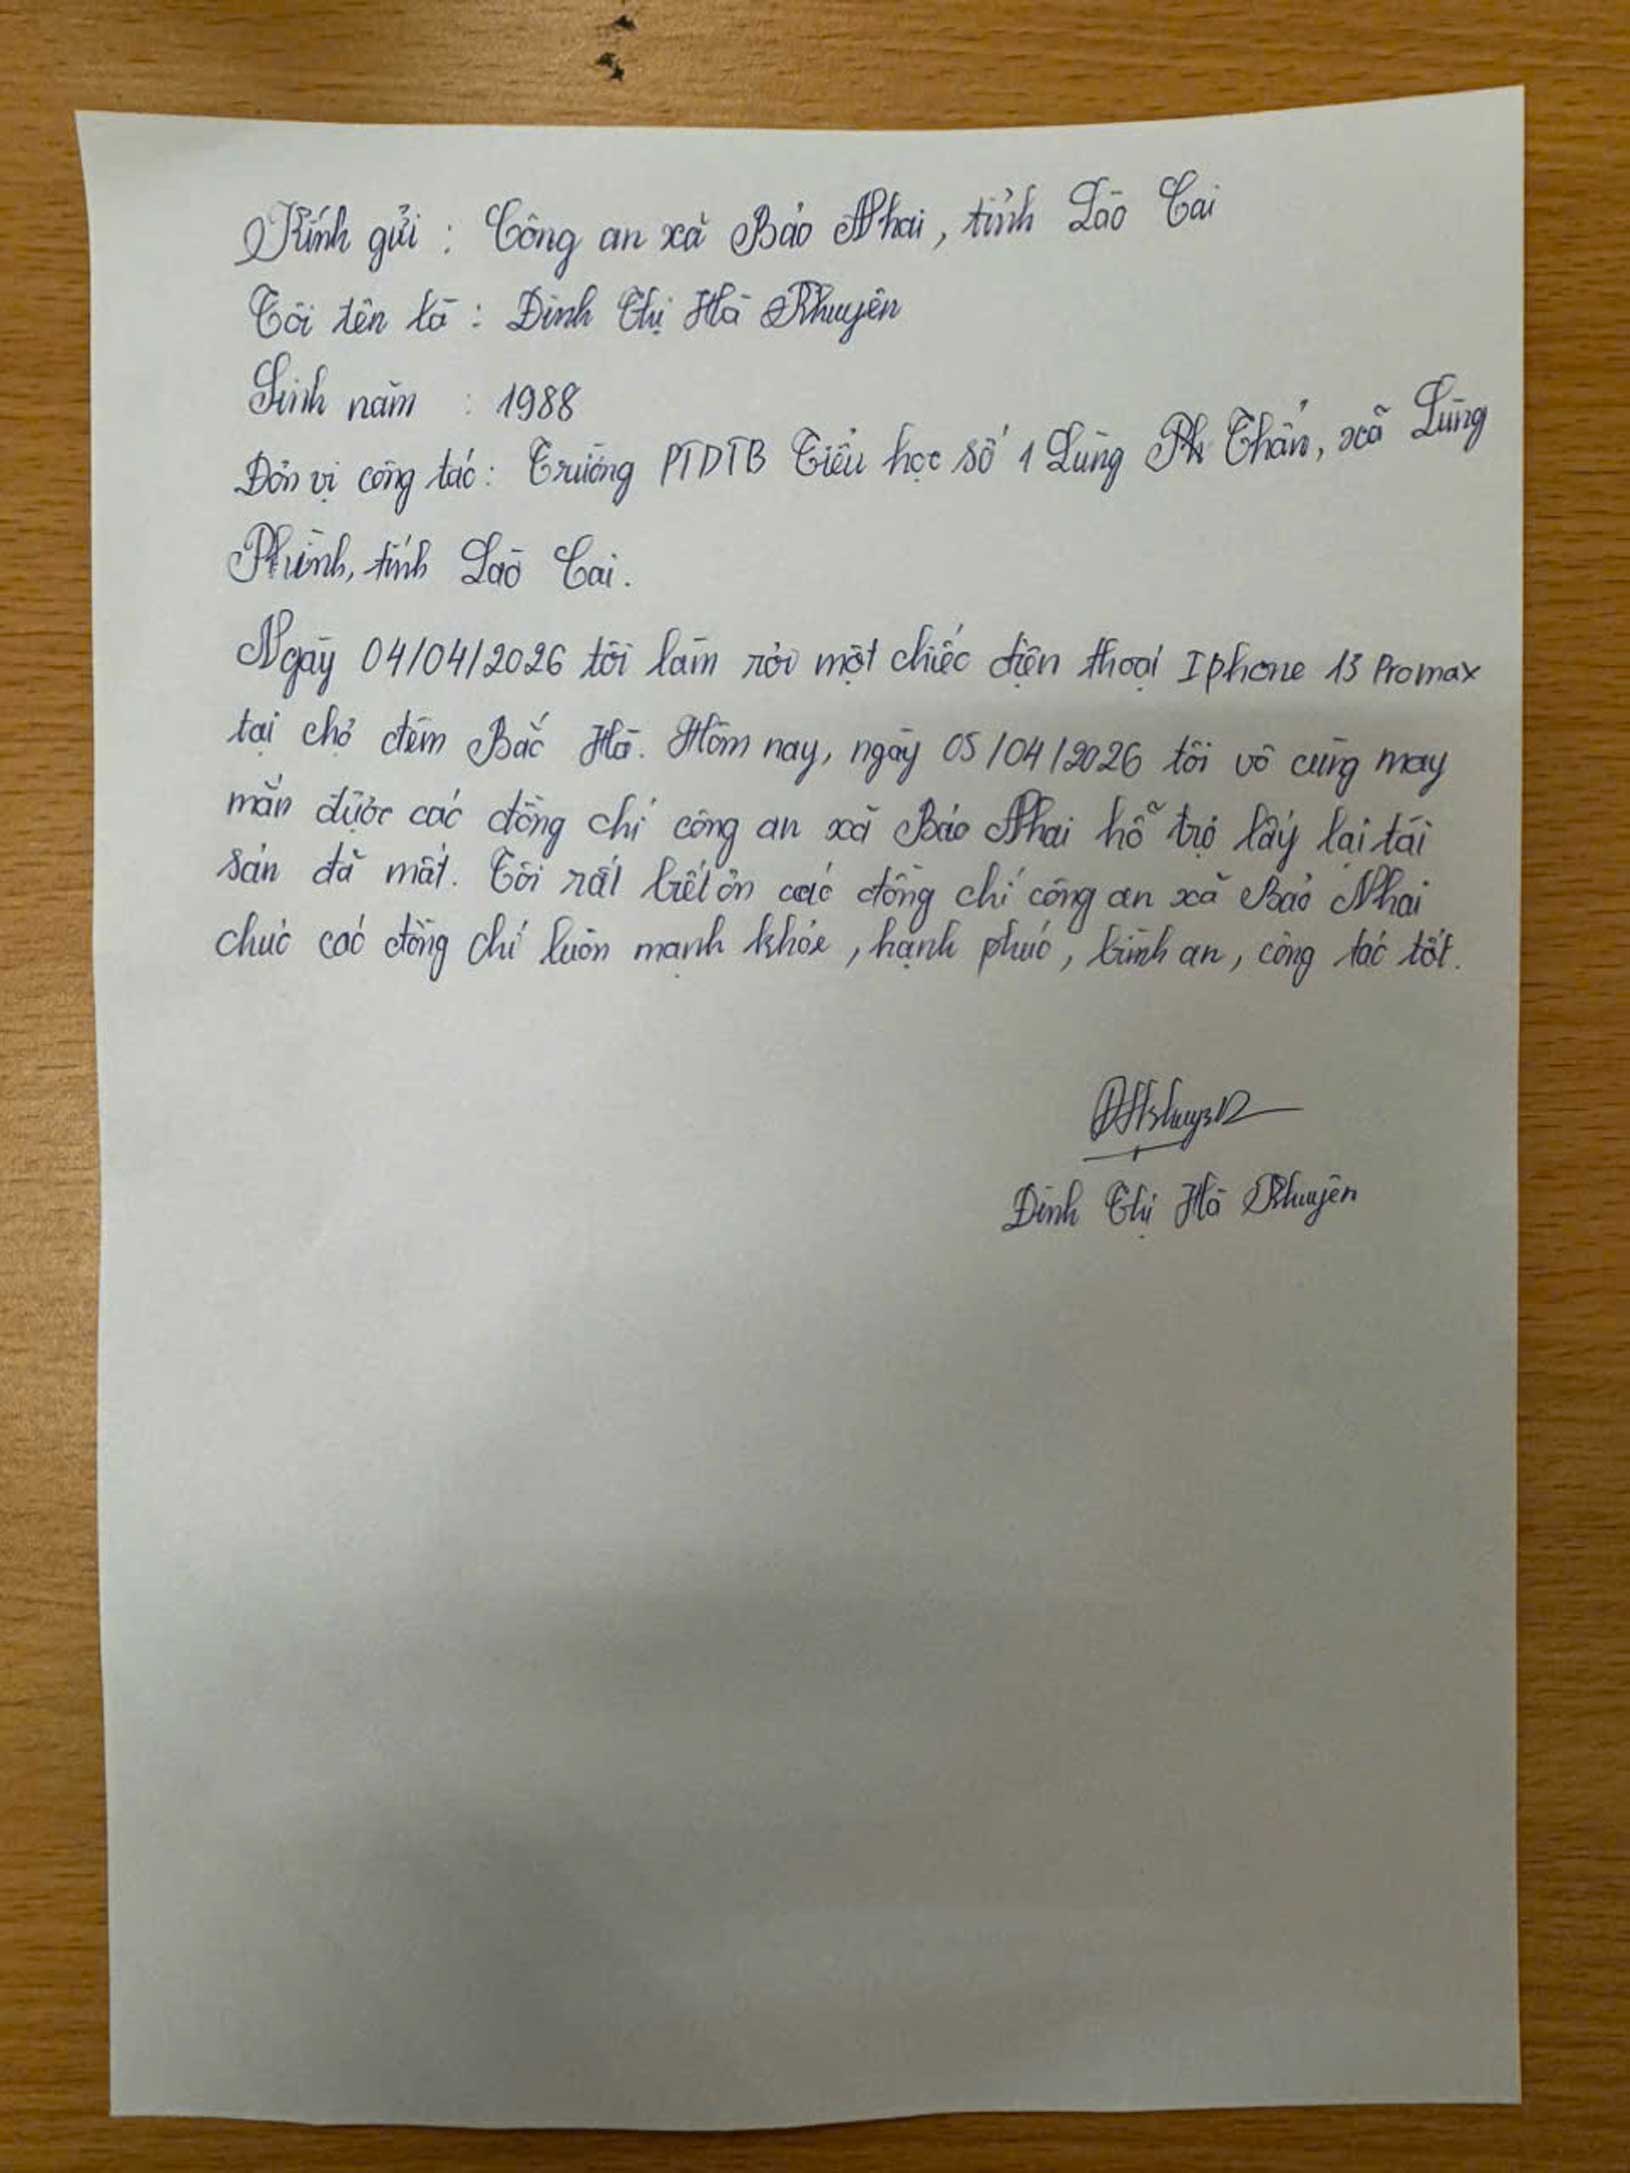 Kính gửi : Công an xã Bảo Nhai, tỉnh Lào Cai
Tôi tên là : Đinh Thị Hà Khuyên
Sinh năm : 1988
Đơn vị công tác : Trường PTDTB Tiểu học số 1 Lùng Thẩn, xã Lùng
Phình, tỉnh Lào Cai.
Ngày 04/04/2026 tôi làm rơi một chiếc điện thoại Iphone 13 Promax
tại chợ đêm Bắc Hà. Hôm nay, ngày 05/04/2026 tôi vô cùng may
mắn được các đồng chí công an xã Bảo Nhai hỗ trợ lấy lại tài
sản đã mất. Tôi rất biết ơn các đồng chí công an xã Bảo Nhai
chúc các đồng chí luôn mạnh khỏe, hạnh phúc, bình an, công tác tốt.
Đinh Thị Hà Khuyên